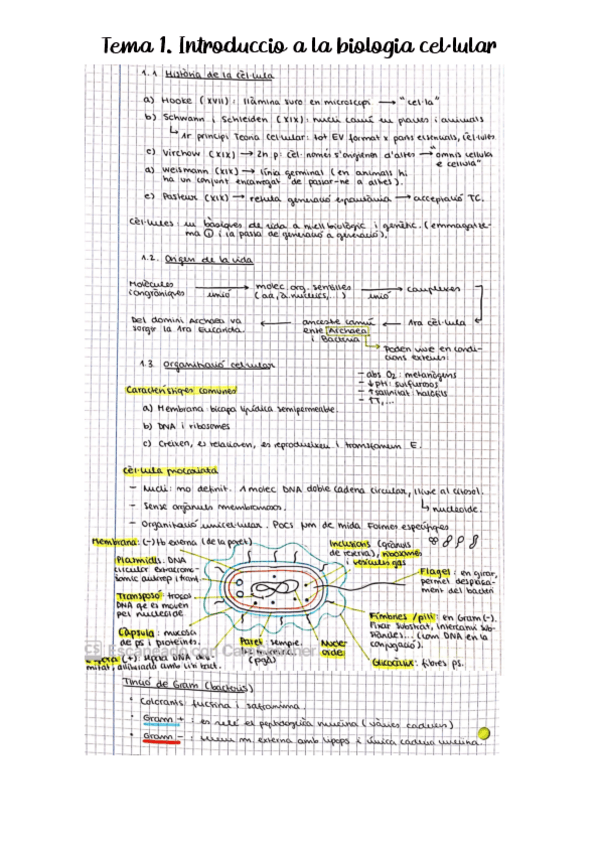 Tema 1. Introduccio a la biologia cel·lular
1.1 Història de la cèl·lula
a) Hooke (XVII): llàmina suro en microscopi → "cel·la"
b) Schwann i Schleiden (XIX): nucli comú en plantes i animals
↳ 1r principi Teoria Cel·lular: tot EV format x parts essencials, cèl·lules
c) Virchow (XIX) → 2n p: cèl. només s'originen d'altres → "omnis cellula
e cellula"
d) Weismann (XIX) → línia germinal (en animals hi
ha un conjunt encarregat de passar-ne a altres).
e) Pasteur (XIX) → refuta generació espontània → acceptació TC.
Cèl·lules: un bàsiques de vida a nivell biològic i genètic. (emmagatze-
ma i la passa de generació a generació).
1.2. Origen de la vida
Molècules
inorgàniques
unió
→ molec. org. senzilles
(aa, à.nucleics,...)
unió
→ complexes
Del domini Archaea va
sorgir la 1ra Eucariota.
← ancestre comú
entre Archaea
i Bacteria
← 1ra cèl·lula
Poden viure en condi-
cions extremes:
- abs O₂: metanògens
- ↓pH: sulfurosos
- ↑salinitat: halòfils
- ↑T,...
1.3. Organització cel·lular
Característiques comunes
a) Membrana: bicapa lipídica semipermeable.
b) DNA i ribosomes
c) Creixen, es relacionen, es reprodueixen i transformen E.
Cèl·lula procariota
- Nucli: no definit. 1 molec DNA doble cadena circular, lliure al citosol.
↳ nucleoide.
- Sense orgànuls membranosos.
- Organització unicel·lular. Pocs µm de mida. Formes específiques
Membrana: (-) Hb externa (de la paret)
Plasmidis: DNA
circular extracromo-
sòmic autorep i transf.
Transposó: trossos
DNA que es mouen
pel nucleoide
Càpsula: mucosa
de ps i proteïnes.
Paret: sempre.
(pgà)
Nucle-
oide
Inclusions (grànuls
de reserva), ribosomes
i vesícules gas
Flagel: en girar,
permet desplaça-
ment del bacteri
Fímbries/pili: en Gram (-).
Fixar substrat, intercanvi sub-
stàncies... (com DNA en la
conjugació).
Glicocàlix: fibres ps.
CS Escaneado con CamScanner
Tinció de Gram (bacteris)
• Colorants: fucsina i safranina.
• Gram +: es reté el peptidoglicà mureina (vàries cadenes)
• Gram -: externa amb lipops i única cadena mureina.